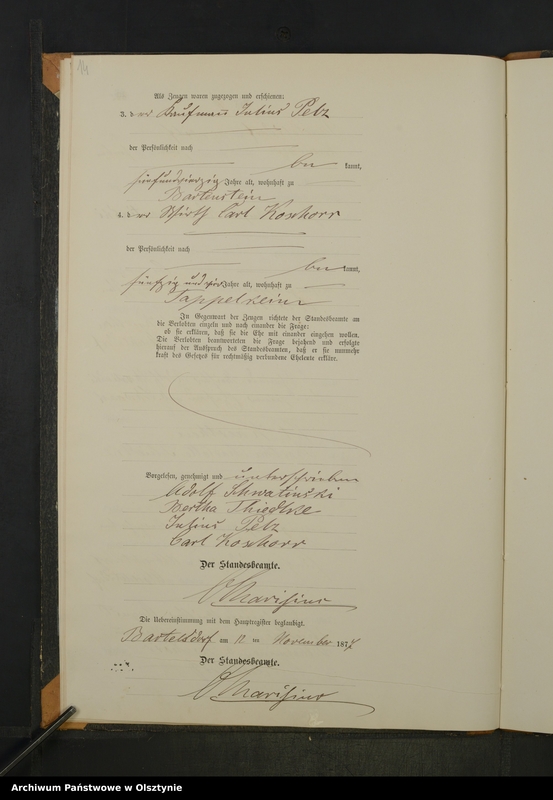 14
Als Zeugen waren zugezogen und erschienen:
3. der Kaufmann Julius Petz
der Persönlichkeit nach
be kannt,
fünfundvierzig Jahre alt, wohnhaft zu
Bartenstein
4. der Wirth Carl Koskorr
der Persönlichkeit nach
be kannt,
fünfzig und Jahre alt, wohnhaft zu
Tappelkeim
In Gegenwart der Zeugen richtete der Standesbeamte an
die Verlobten einzeln und nach einander die Frage:
ob sie erklären, daß sie die Ehe mit einander eingehen wollen.
Die Verlobten beantworteten die Frage bejahend und erfolgte
hierauf der Ausspruch des Standesbeamten, daß er sie nunmehr
kraft des Gesetzes für rechtmäßig verbundene Eheleute erkläre.
Vorgelesen, genehmigt und unterschrieben
Adolf Schwalinski
Bertha Thiedtke
Julius Petz
Carl Koskorr
Der Standesbeamte.
Die Uebereinstimmung mit dem Hauptregister beglaubigt.
Bartelsdorf am 11 ten November 187
Der Standesbeamte.
Archiwum Państwowe w Olsztynie